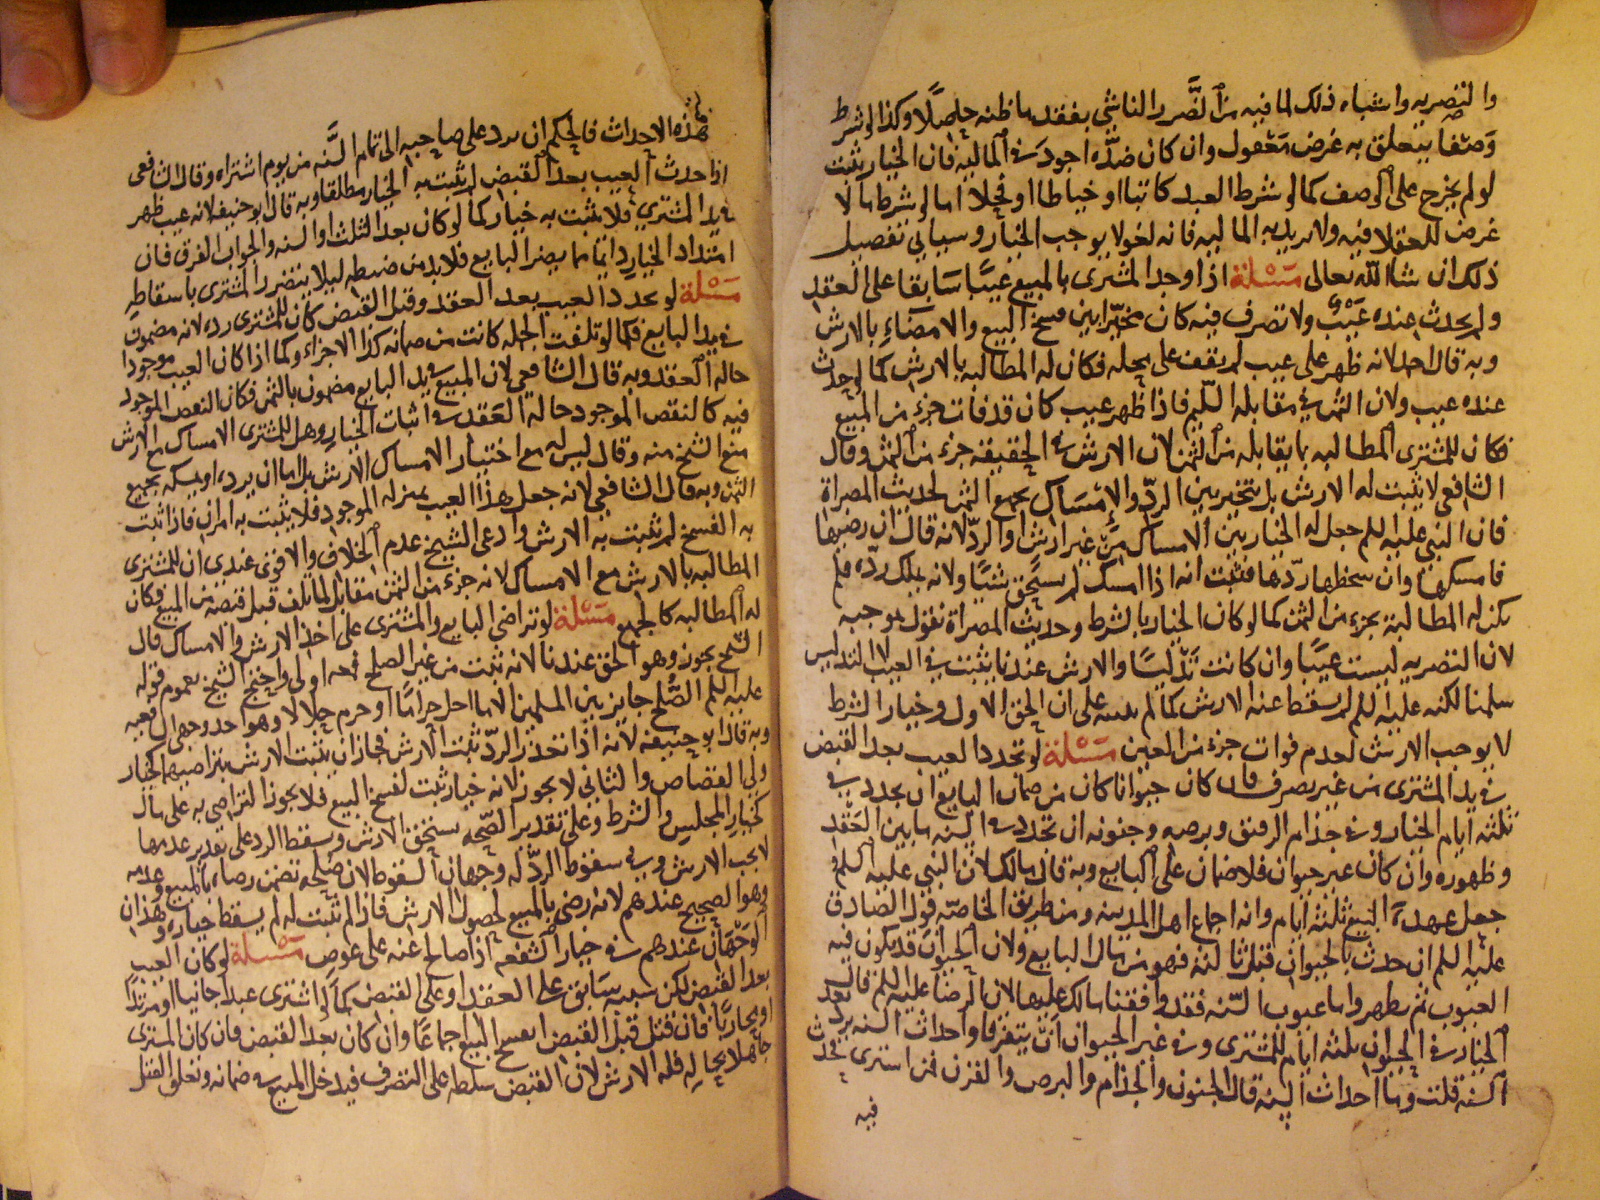 والتصريه واشباه ذلك لما فيه من الضرر الناشي بفقد ما ظنه حاصلا وكذا لو شرط
وصفا يتعلق به غرض معقول وان كان ضده اجود في الماليه فان الخيار يثبت
لو لم يخرج على الوصف كما لو شرط العبد كاتبا او خياطا او فحلا اما لو شرط ما لا
غرض للعقلا فيه ولا يزيد به الماليه فانه لغو لا يوجب الخيار وسياتي تفصيل
ذلك ان شا الله تعالى مسئلة اذا وجد المشترى بالمبيع عيبا سابقا على العقد
ولم يحدث عنده عيب ولا تصرف فيه كان مخيرا بين فسخ البيع والامضاء بالارش
وبه قال احمد لانه ظهر على عيب لم يقف على محله فكان له المطالبه بالارش كما لو حدث
عنده عيب ولان الثمن في مقابله السليم فاذا ظهر عيب كان قد فات جزء من المبيع
فكان للمشترى المطالبه بما يقابله من الثمن لان الارش في الحقيقة جزء من الثمن وقال
الشافعى لا يثبت له الارش بل يتخير بين الرد والامساك بجميع الثمن لحديث المصراة
فان النبى عليه السلم جعل له الخيار بين الامساك من غير ارش والرد لانه قال ان رضيها
امسكها وان سخطها ردها فثبت انه اذا امسك لم يستحق شيئا ولانه يملك رده فلم
يكن له المطالبة بجزء من الثمن كما لو كان الخيار بالشرط وحديث المصراة نقول بموجبه
لان التصريه ليست عيبا وان كانت تدليسا والارش عندنا يثبت في العيب لا التدليس
سلمنا لكنه عليه السلم لم يسقط عنه الارش كما لم على ان الحق الاول وخيار الشرط
لا يوجب الارش لعدم فوات جزء من العين مسئلة لو تجدد العيب بعد القبض
في يد المشترى من غير تصرف فان كان حيوانا كان من ضمان البايع ان تجدد في
ثلثه ايام الخيار وفي جذام الرقيق وبرصه وجنونه ان تجدد في السنه ما بين العقد
وظهوره وان كان غير حيوان فلا ضمان على البايع وبه قال مالك لان النبى عليه السلم
جعل عهدة البيع ثلثة ايام وانه اجماع اهل المدينه ومن طريق الخاصه قول الصادق
عليه السلم ان حدث بالحيوان قبل ثالثه فهو من مال البايع ولان الحيوان قد يكون فيه
العيوب ثم يظهر واما عيوب السنه فقد وافقنا مالك عليها لان الرضا عليه السلم قال
الخيار في الحيوان ثلثه ايام للمشترى وفي غير الحيوان ان يتفرقا واحداث السنه يرد بعد
السنه قلت وما احداث السنه قال الجنون والجذام والبرص والقرن فمن اشترى فحدث
فيه
هذه الاحداث فالحكم ان يرد على صاحبه الى تمام السنه من يوم اشتراه وقال الشافعى
اذا حدث العيب بعد القبض لم يثبت به الخيار مطلقا وبه قال ابو حنيفه لانه عيب ظهر
في يد المشترى فلا يثبت به خيار كما لو كان بعد الثلث او السنه والجواب الفرق فان
امتداد الخيار دائما مما يضر البايع فلا بد من ضبطه ليلا يتضرر المشترى باسقاطه
مسئلة لو تجدد العيب بعد العقد وقبل القبض كان للمشترى رده لانه مضمون
في يد البايع فكما لو تلفت الجمله كانت من ضمانه كذا الاجزاء وكما اذا كان العيب موجودا
حاله العقد وبه قال الشافعي لان المبيع في يد البايع مضمون بالثمن فكان النقص الموجود
فيه كالنقص الموجود حالة العقد في اثبات الخيار وهل للمشترى الامساك مع الارش
منع الشيخ منه وقال ليس له مع اختيار الامساك الارش بل اما ان يرده او يمسكه بجميع
الثمن وبه قال الشافعي لانه جعل هذا العيب بمنزله الموجود فلا يثبت به امران فاذا ثبت
به الفسخ لم يثبت به الارش وادعى الشيخ عدم الخلاف والاقوى عندى ان للمشترى
المطالبه بالارش مع الامساك لانه جزء من الثمن مقابل لما تلف قبل قبضه من المبيع فكان
له المطالبه كالجميع مسئلة لو تراضى البايع والمشترى على اخذ الارش والامساك قال
الشيخ يجوز وهو الحق عندنا لانه ثبت من غير الصلح فمعه اولى واحتج الشيخ بعموم قوله
عليه السلم الصلح جايز بين المسلمين الا ما احل حراما او حرم حلالا وهو احد وجهى الشافعيه
وبه قال ابو حنيفه لانه اذا تعذر الرد ثبت الارش فجاز ان يثبت الارش بتراضيهما كخيار
ولى القصاص والثاني لا يجوز لانه خيار ثبت لفسخ البيع فلا يجوز التراضى به على مال
كخيار المجلس والشرط وعلى تقدير الصحه يستحق الارش وسقط الرد على تقدير عدمها
لا يجب الارش وفي سقوط الرد له وجهان السقوط لان صلحه تضمن رضاه بالمبيع وعدمه
وهو الصحيح عندهم لانه رضى بالمبيع لحصول الارش فاذا لم يثبت له لم يسقط خياره وهذان
الوجهان عندهم في خيار الشفعه اذا صالح عنه على عوض مسئلة لو كان العيب
بعد القبض لكن سببه سابق على العقد او على القبض كما لو اشترى عبدا جانيا او مرتدا
او محاربا فان قتل قبل القبض انفسخ البيع اجماعا وان كان بعد القبض فان كان المشترى
جاهلا بحاله فله الارش لان القبض سلطه على التصرف فيدخل المبيع في ضمانه وتعلق القتل